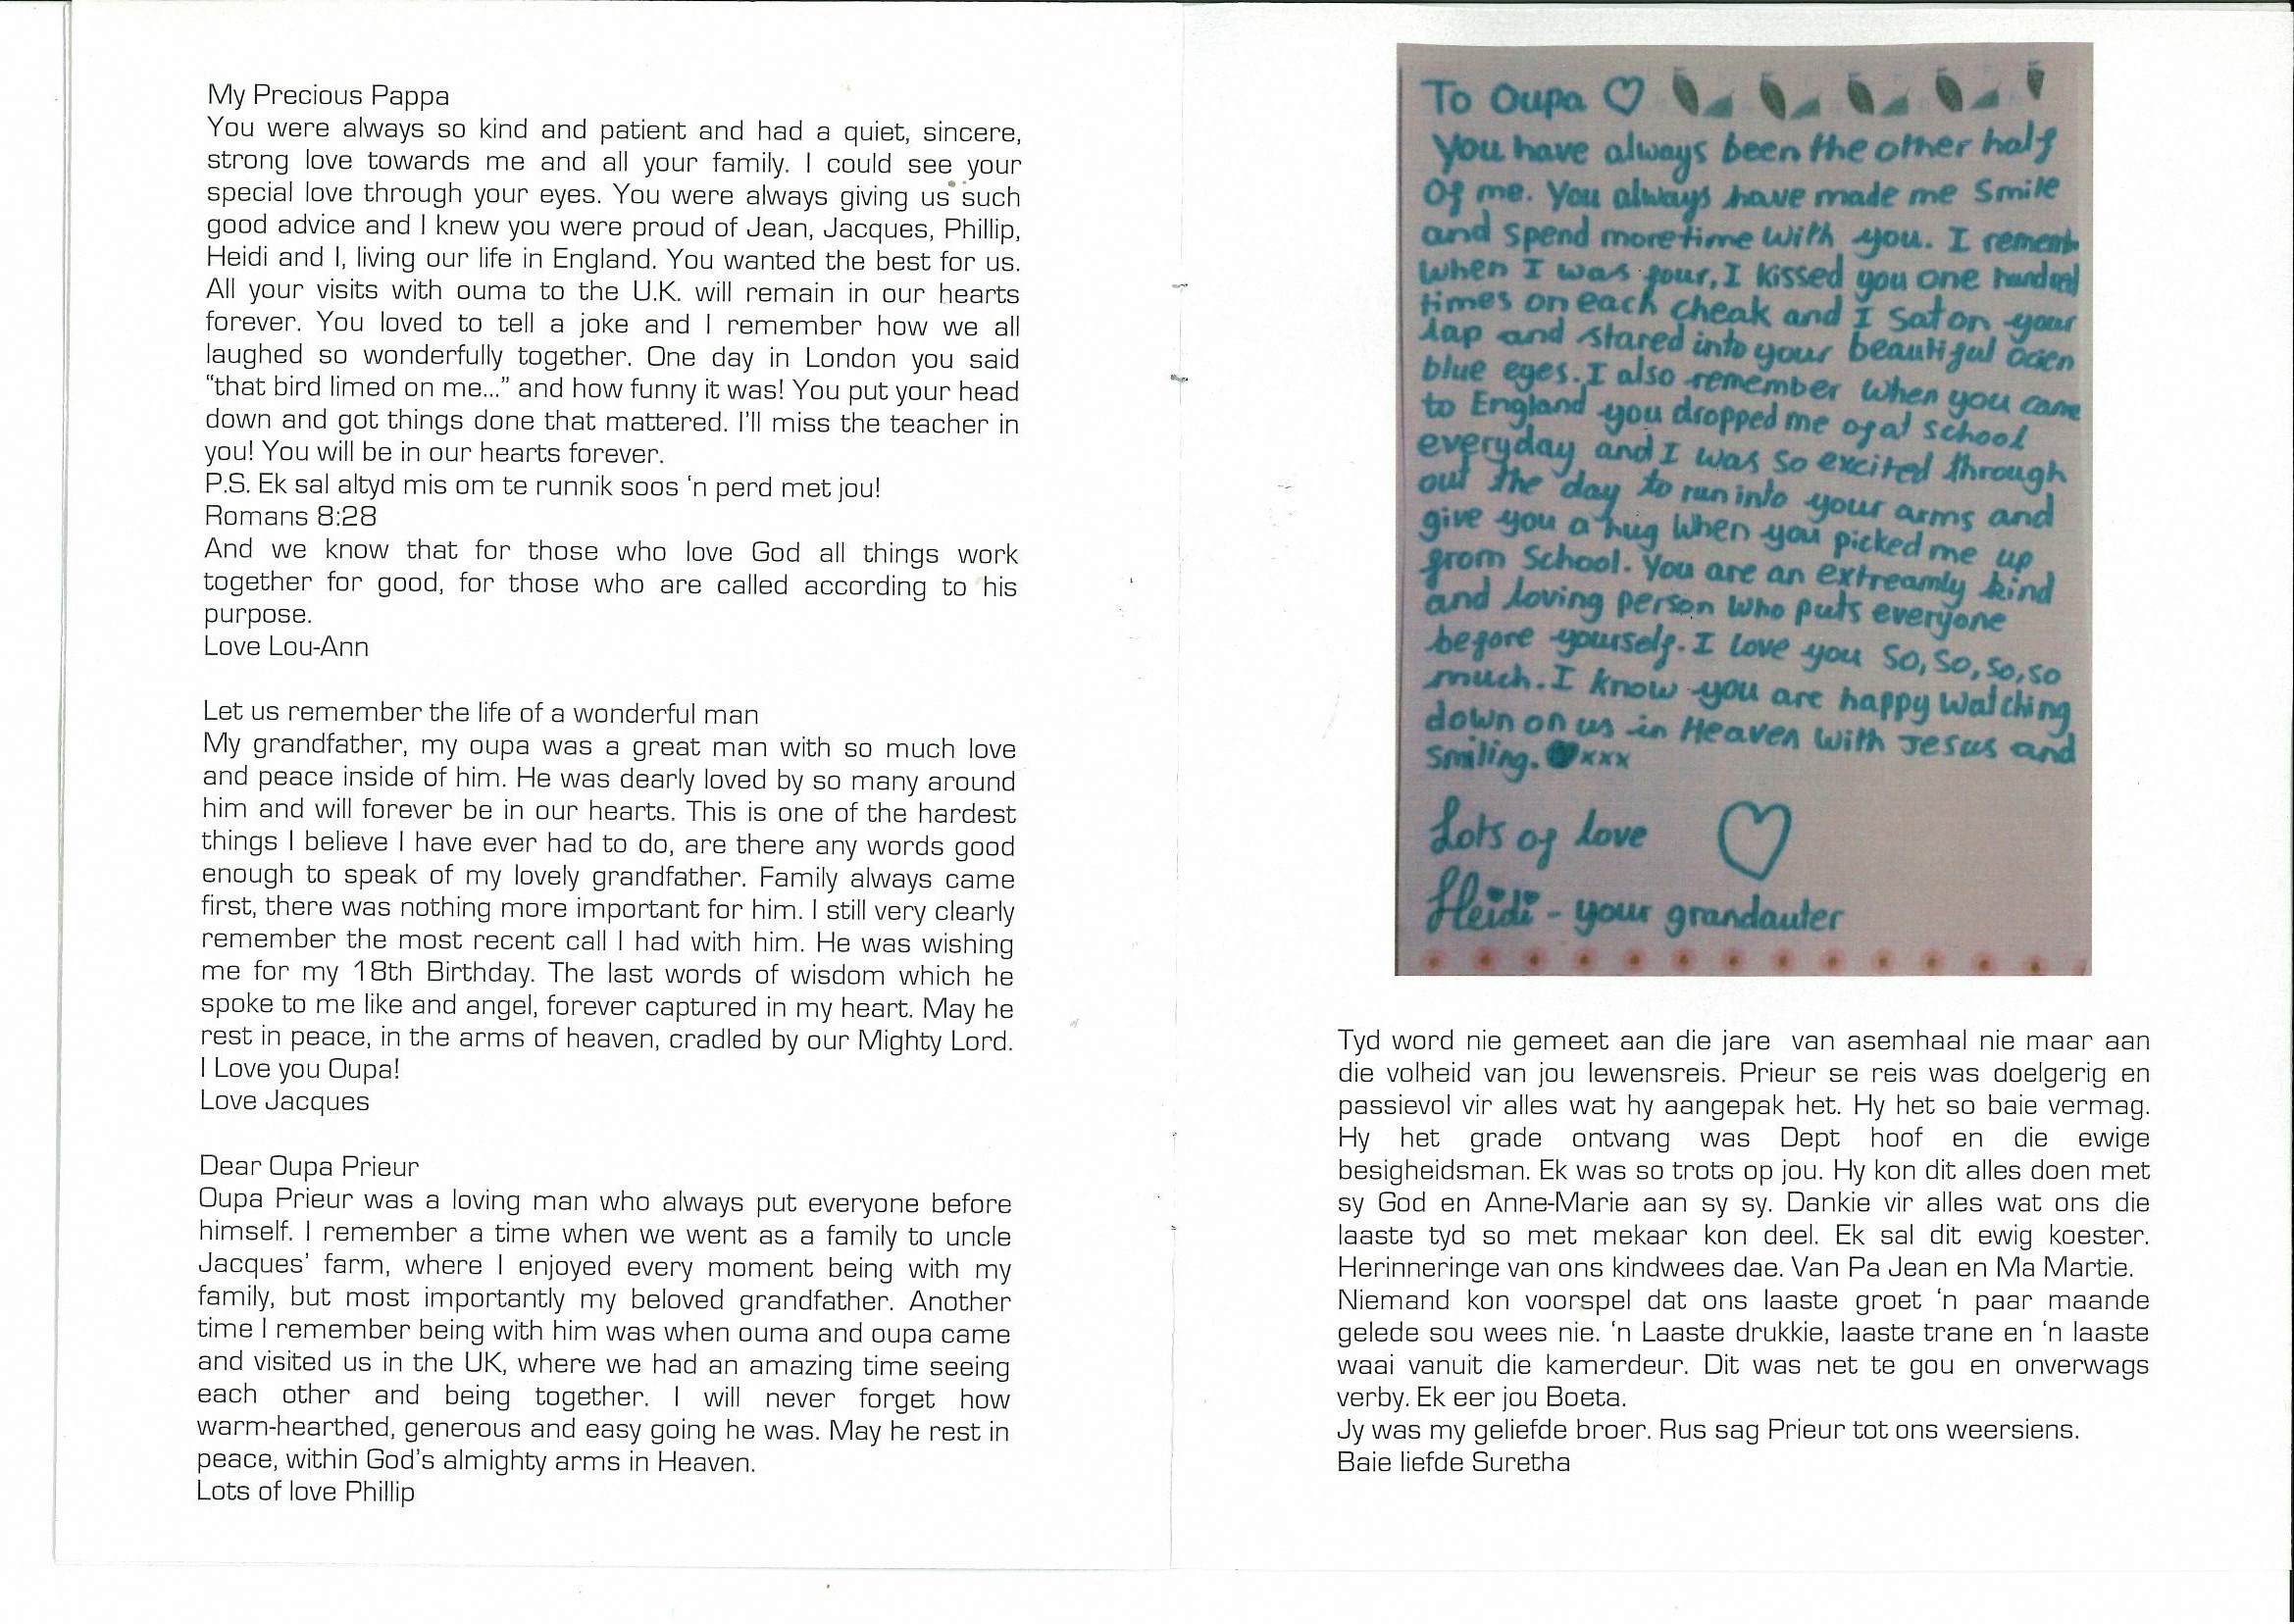 My Precious Pappa
You were always so kind and patient and had a quiet, sincere,
strong love towards me and all your family. I could see your
special love through your eyes. You were always giving us such
good advice and I knew you were proud of Jean, Jacques, Phillip,
Heidi and I, living our life in England. You wanted the best for us.
All your visits with ouma to the U.K. will remain in our hearts
forever. You loved to tell a joke and I remember how we all
laughed so wonderfully together. One day in London you said
“that bird limed on me...” and how funny it was! You put your head
down and got things done that mattered. I’ll miss the teacher in
you! You will be in our hearts forever.
P.S. Ek sal altyd mis om te runnik soos ‘n perd met jou!
Romans 8:28
And we know that for those who love God all things work
together for good, for those who are called according to his
purpose.
Love Lou-Ann
Let us remember the life of a wonderful man
My grandfather, my oupa was a great man with so much love
and peace inside of him. He was dearly loved by so many around
him and will forever be in our hearts. This is one of the hardest
things I believe I have ever had to do, are there any words good
enough to speak of my lovely grandfather. Family always came
first, there was nothing more important for him. I still very clearly
remember the most recent call I had with him. He was wishing
me for my 18th Birthday. The last words of wisdom which he
spoke to me like and angel, forever captured in my heart. May he
rest in peace, in the arms of heaven, cradled by our Mighty Lord.
I Love you Oupa!
Love Jacques
Dear Oupa Prieur
Oupa Prieur was a loving man who always put everyone before
himself. I remember a time when we went as a family to uncle
Jacques’ farm, where I enjoyed every moment being with my
family, but most importantly my beloved grandfather. Another
time I remember being with him was when ouma and oupa came
and visited us in the UK, where we had an amazing time seeing
each other and being together. I will never forget how
warm-hearthed, generous and easy going he was. May he rest in
peace, within God’s almighty arms in Heaven.
Lots of love Phillip
To Oupa
You have always been the other half
of me. You always have made me smile
and spend more time with you. I
when I was four, I kissed you one
times on each cheak and I sat on your
lap and stared into your beautiful
blue eyes. I also remember when you came
to England you dropped me of at school
everyday and I was so excited through
out the day to run into your arms and
give you a hug when you picked me up
from School. You are an extreamly kind
and loving person who puts everyone
before yourself. I love you so, so, so, so
much. I know you are happy watching
down on us in Heaven with Jesus and
smiling. xxx
Lots of love
Heidi - your grandauter
Tyd word nie gemeet aan die jare van asemhaal nie maar aan
die volheid van jou lewensreis. Prieur se reis was doelgerig en
passievol vir alles wat hy aangepak het. Hy het so baie vermag.
Hy het grade ontvang was Dept hoof en die ewige
besigheidsman. Ek was so trots op jou. Hy kon dit alles doen met
sy God en Anne-Marie aan sy sy. Dankie vir alles wat ons die
laaste tyd so met mekaar kon deel. Ek sal dit ewig koester.
Herinneringe van ons kindwees dae. Van Pa Jean en Ma Martie.
Niemand kon voorspel dat ons laaste groet ‘n paar maande
gelede sou wees nie. ‘n Laaste drukkie, laaste trane en ‘n laaste
waai vanuit die kamerdeur. Dit was net te gou en onverwags
verby. Ek eer jou Boeta.
Jy was my geliefde broer. Rus sag Prieur tot ons weersiens.
Baie liefde Suretha